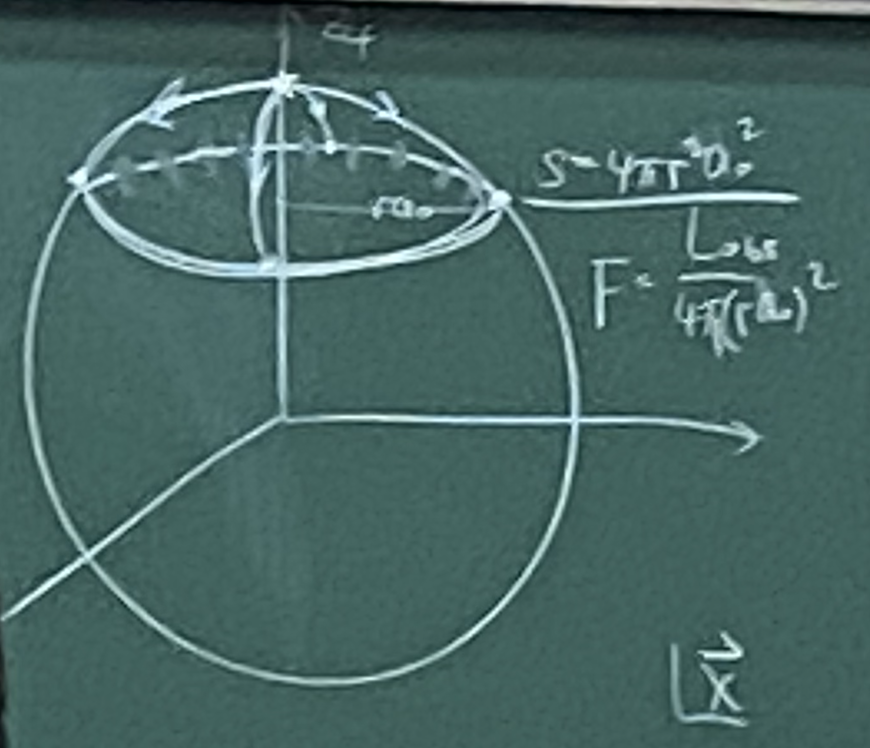 ra₀
S=4πr²a₀²
F=\frac{L_{obs}}{4π(ra₀)²}
\vec{x}